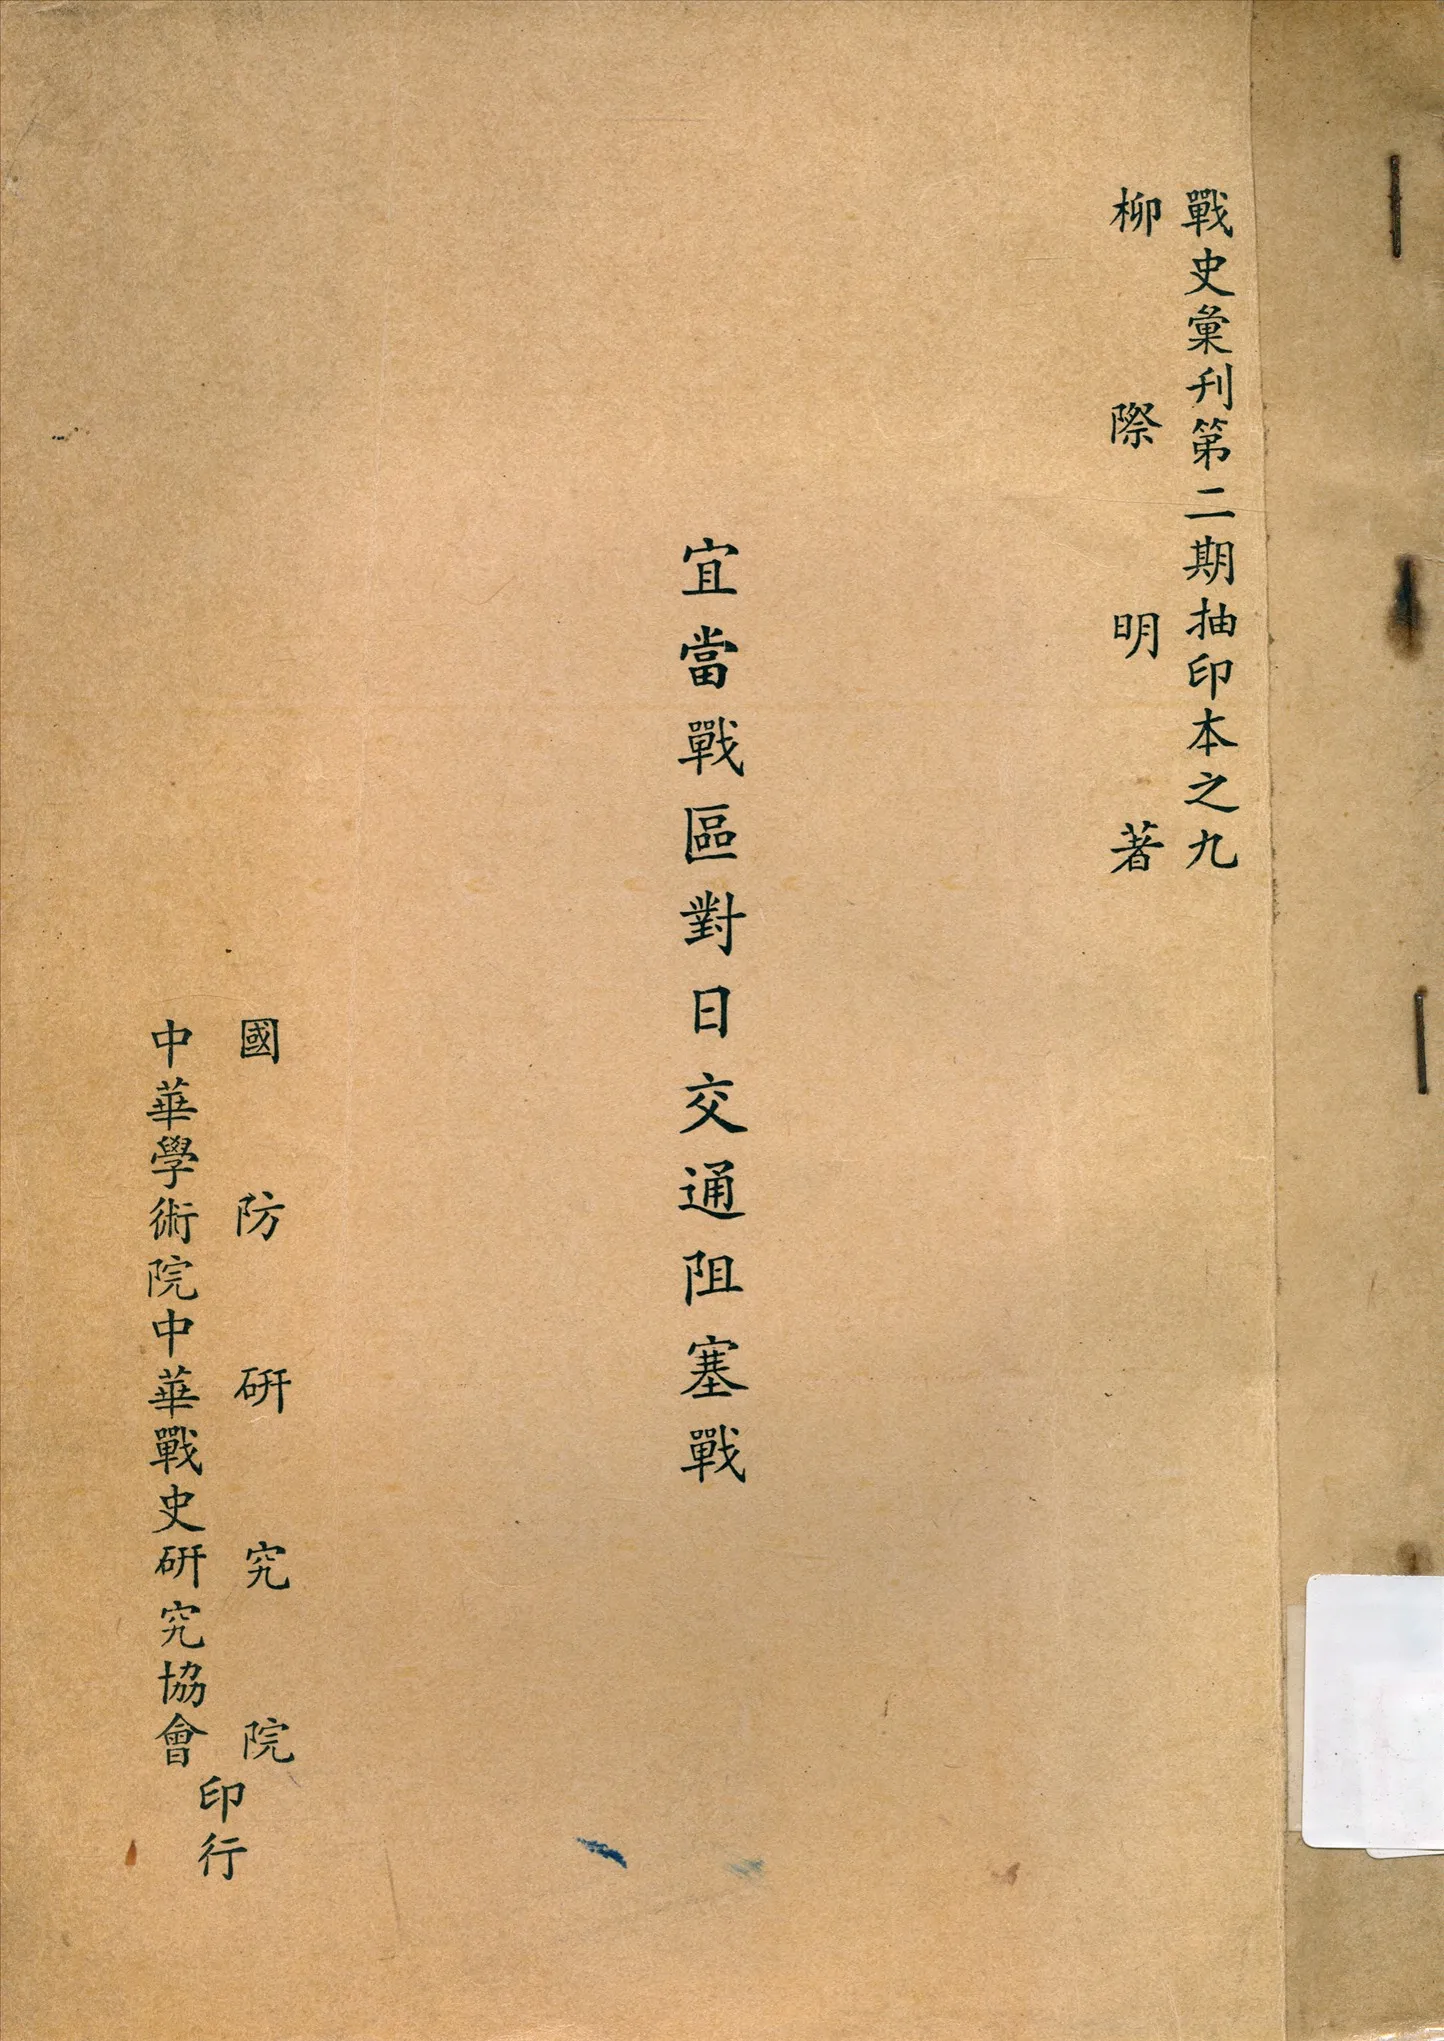 戰史彙刊第二期抽印本之九
柳際明著
宜當戰區對日交通阻塞戰
國防研究院
中華學術院中華戰史研究協會
印行